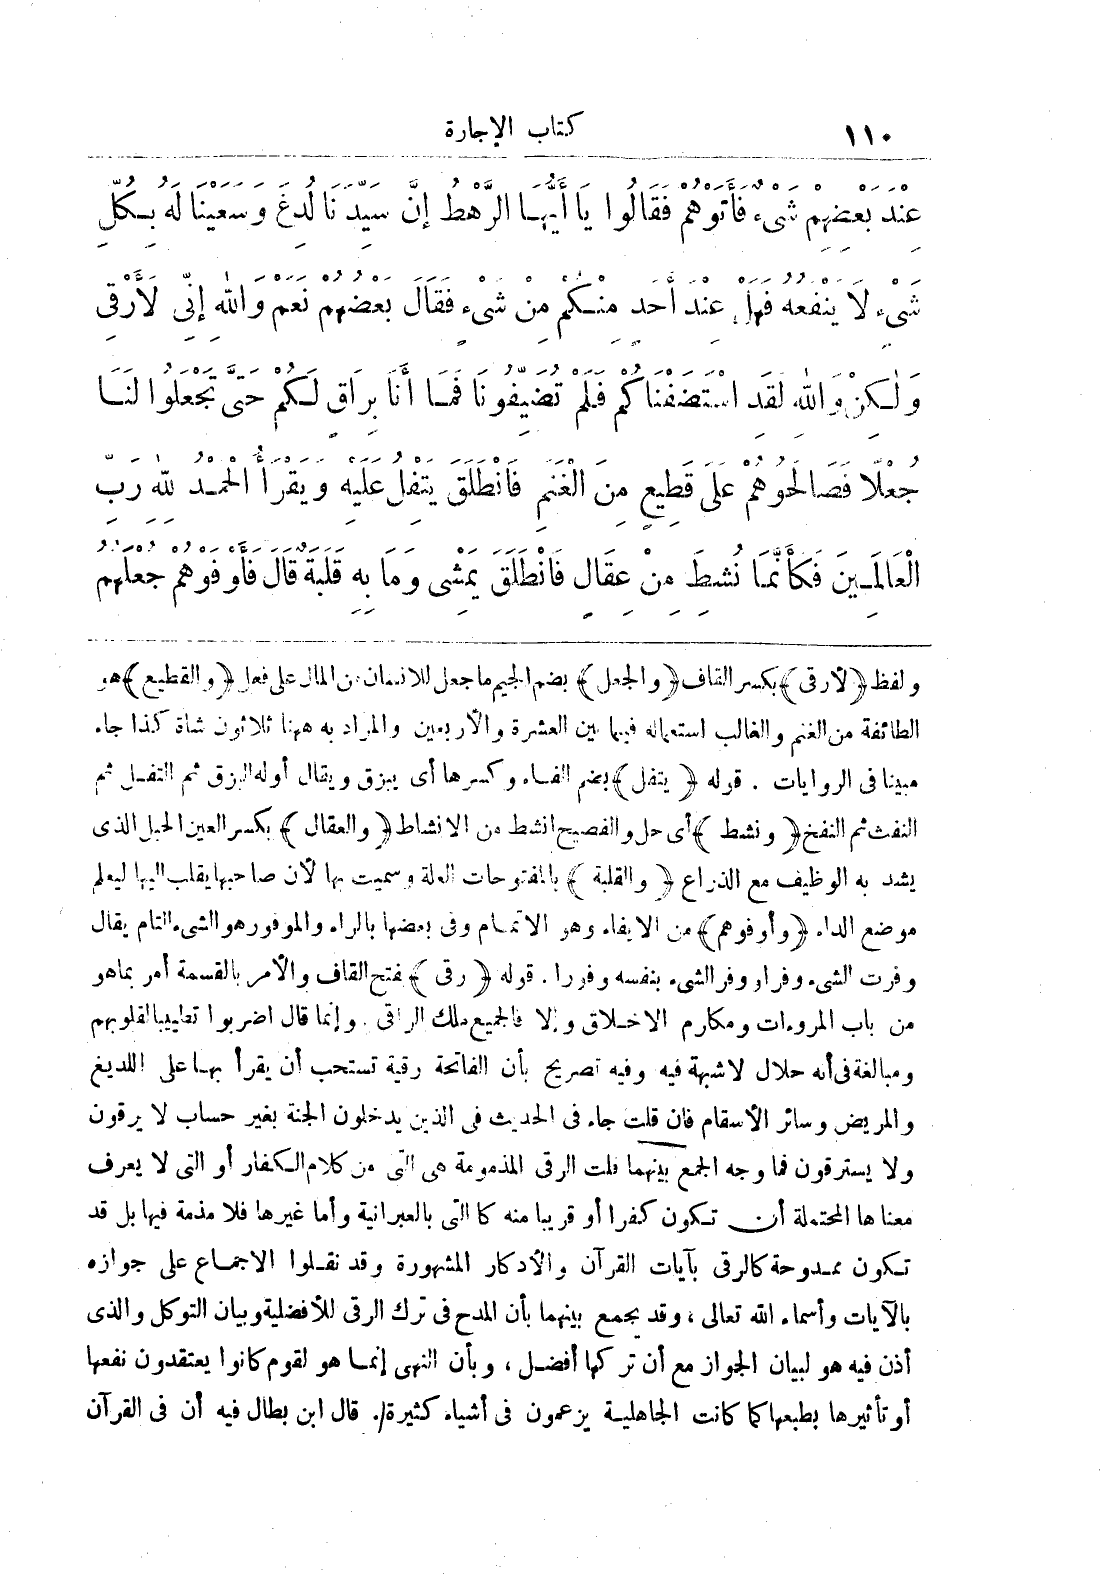 ١١٠ كتاب الإجارة
عِنْدَ بَعْضِهِمْ شَيْءٌ فَأَتَوْهُمْ فَقَالُوا يَا أَيُّهَا الرَّهْطُ إِنَّ سَيِّدَنَا لُدِغَ وَسَعَيْنَا لَهُ بِكُلِّ
شَيْءٍ لَا يَنْفَعُهُ فَهَلْ عِنْدَ أَحَدٍ مِنْكُمْ مِنْ شَيْءٍ فَقَالَ بَعْضُهُمْ نَعَمْ وَاللهِ إِنِّي لَأَرْقِي
وَلٰكِنْ وَاللهِ لَقَدِ اسْتَضَفْنَاكُمْ فَلَمْ تُضَيِّفُونَا فَمَا أَنَا بِرَاقٍ لَكُمْ حَتَّى تَجْعَلُوا لَنَا
جُعْلًا فَصَالَحُوهُمْ عَلَى قَطِيعٍ مِنَ الْغَنَمِ فَانْطَلَقَ يَتْفِلُ عَلَيْهِ وَيَقْرَأُ الْحَمْدُ لِلّٰهِ رَبِّ
الْعَالَمِينَ فَكَأَنَّمَا نُشِطَ مِنْ عِقَالٍ فَانْطَلَقَ يَمْشِي وَمَا بِهِ قَلَبَةٌ قَالَ فَأَوْفَوْهُمْ جُعْلَهُمُ
ولفظ ﴿لأرقى﴾ بكسر القاف ﴿والجعل﴾ بضم الجيم ما جعل للانسان من المال على فعل ﴿والقطيع﴾ هو
الطائفة من الغنم والغالب استعماله فيها بين العشرة والأربعين والمراد به ههنا ثلاثون شاة كذا جاء
مبينا فى الروايات . قوله ﴿يتفل﴾ بضم الفاء وكسرها أى يبزق ويقال أوله البزق ثم التفل ثم
النفث ثم النفخ ﴿ونشط﴾ أى حل والفصيح أنشط من الانشاط ﴿والعقال﴾ بكسر العين الحبل الذى
يشد به الوظيف مع الذراع ﴿والقلبة﴾ بالمفتوحات العلة وسميت بها لأن صاحبها يقلب اليها ليعلم
موضع الداء ﴿وأوفوهم﴾ من الايفاء وهو الاتمام وفى بعضها بالراء والموفور هو الشىء التام يقال
وفرت الشىء وفرا ووفر الشىء بنفسه وفورا . قوله ﴿رقى﴾ بفتح القاف والأمر بالقسمة أمر بما هو
من باب المروءات ومكارم الاخلاق وإلا فالجميع ملك الراقى . وإنما قال اضربوا تطييبا لقلوبهم
ومبالغة فى أنه حلال لا شبهة فيه وفيه تصريح بأن الفاتحة رقية تستحب أن يقرأ بها على اللديغ
والمريض وسائر الأسقام فان قلت جاء فى الحديث فى الذين يدخلون الجنة بغير حساب لا يرقون
ولا يسترقون فما وجه الجمع بينهما قلت الرقى المذمومة هى التى من كلام الكفار أو التى لا يعرف
معناها المحتملة أن تكون كفرا أو قريبا منه كالتى بالعبرانية وأما غيرها فلا مذمة فيها بل قد
تكون ممدوحة كالرقى بآيات القرآن والأذكار المشهورة وقد نقلوا الاجماع على جوازه
بالآيات وأسماء الله تعالى ، وقد يجمع بينهما بأن المدح فى ترك الرقى للأفضلية وبيان التوكل والذى
أذن فيه هو لبيان الجواز مع أن تركها أفضل ، وبأن النهى إنما هو لقوم كانوا يعتقدون نفعها
أو تأثيرها بطبعها كما كانت الجاهلية يزعمون فى أشياء كثيرة/. قال ابن بطال فيه أن فى القرآن